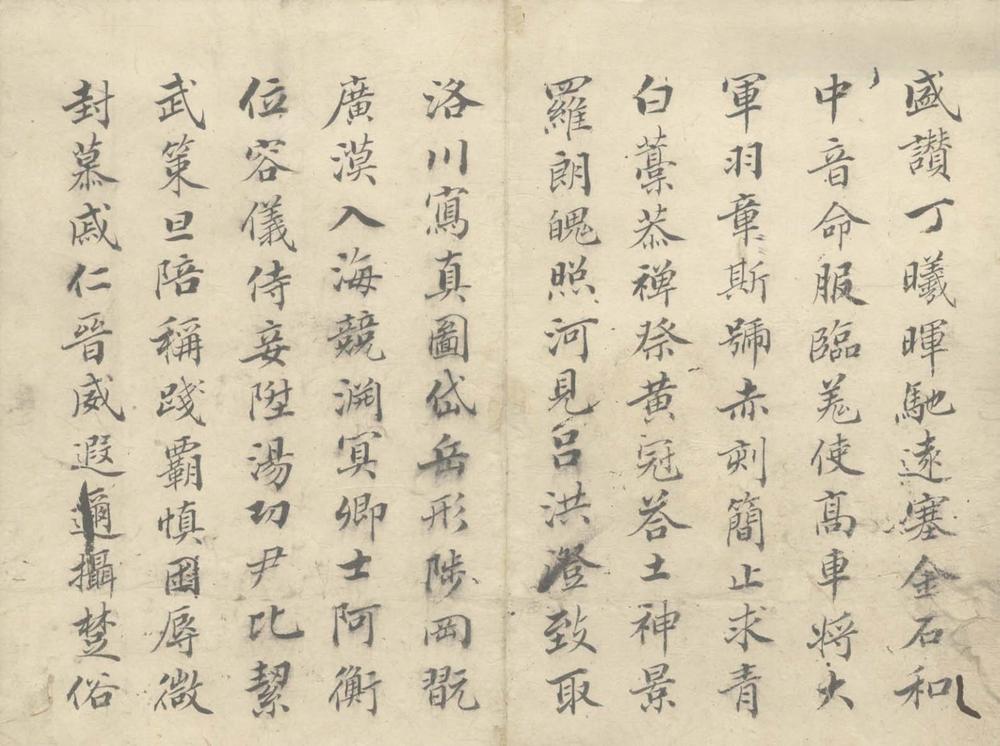 盛讚丁曦暉馳遠塞金石和
中音命服臨羌使高車將大
軍羽章斯號赤刻簡止求青
白藁恭禪祭黃冠荅土神景
羅朗魄照河見呂洪澄致取
洛川寫真圖岱岳形陟岡翫
廣漠入海競淵冥卿士阿衡
位容儀侍妾陞湯功尹比絜
武策旦陪稱踐霸慎固辱微
封慕戚仁晉威遐邇攝楚俗